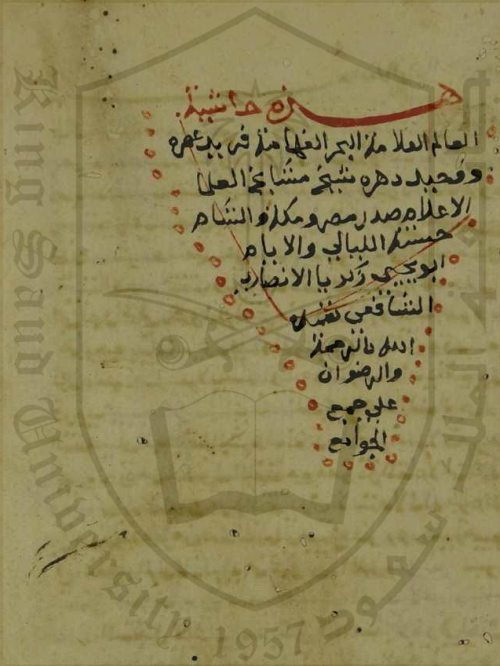 هذه حاشية
العالم العلامة البحر الفهامة فريد عصره
ووحيد دهره شيخ مشايخ العلما
الاعلام صدر مصر ومكة والشام
حسنة الليالي والايام
ابو يحيى زكريا الانصاري
الشافعي تغمده
الله بالرحمة
والرضوان
على جمع
الجوامع
King Saud University
جامعة الملك سعود
1957